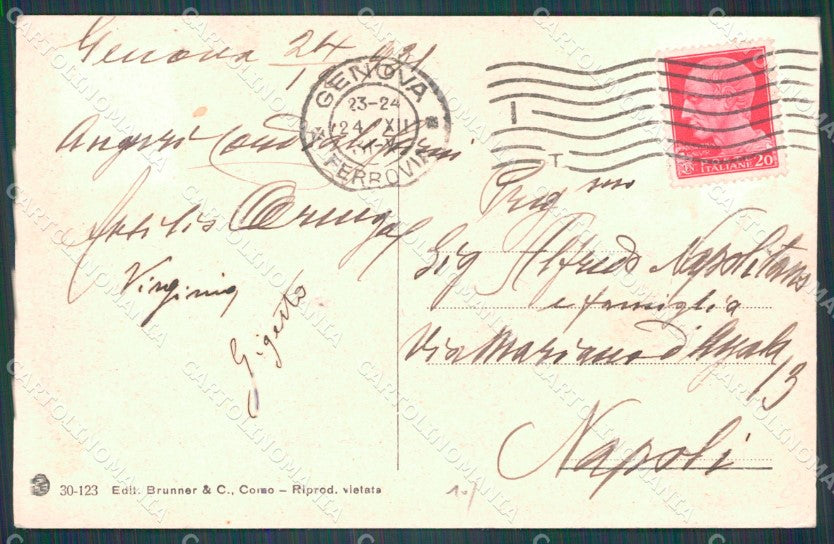 Genova 24/1 931
GENOVA
23-24
24 XII
FERROVIA
ITALIANE 20
Auguri Cordialissimi
Attilio
Virginia
Gigetto
Preg mo
Sig Alfredo Napolitano
e famiglia
Via Mariano d'Ayala
13
Napoli
30-123 Edit. Brunner & C., Como – Riprod. vietata
CARTOLINOMANIA